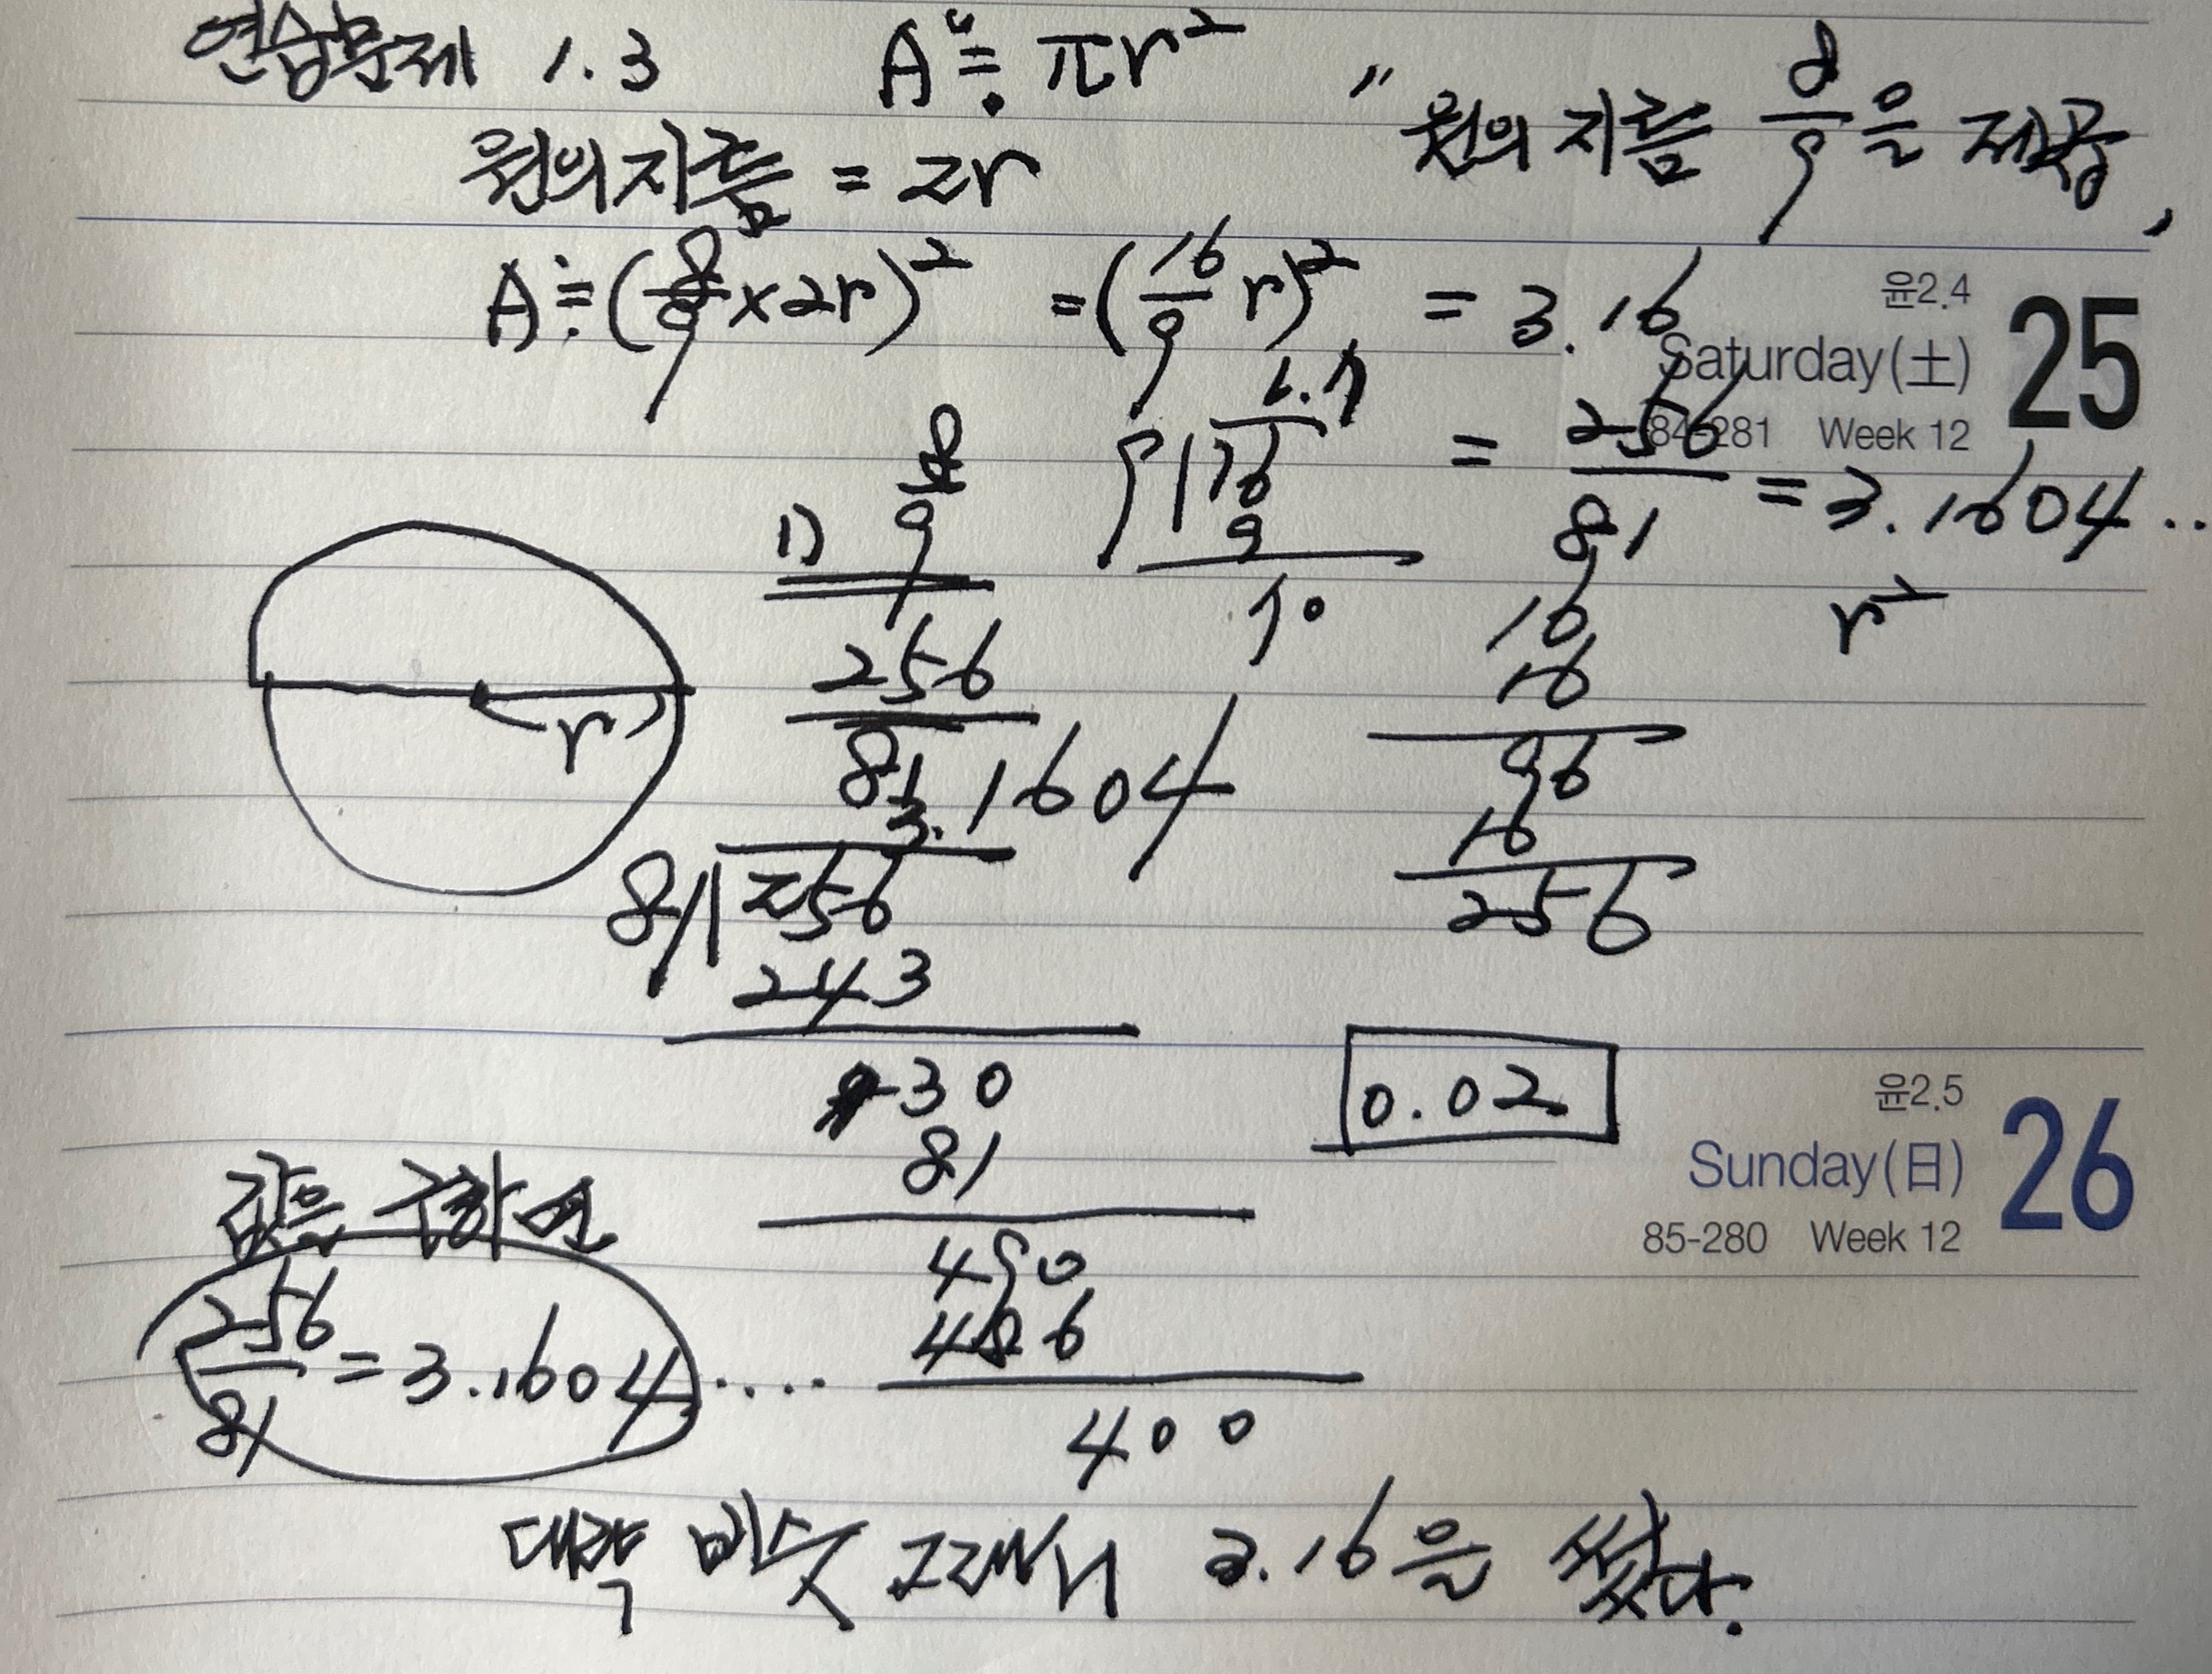 연습문제 1.3 A ≒ πr²
" 원의 지름 8/9을 제곱,
원의 지름 = 2r
A ≒ (8/9 × 2r)² = (16/9 r)² = 3.16
윤2.4
Saturday(土) 25
84-281 Week 12
= 256/81 = 3.1604..
r²
1.7
9 16
9
70
1) 8/9
256/81
r
16
16
96
16
256
3.1604
81 256
243
130
81
490
486
400
0.02
윤2.5
Sunday(日) 26
85-280 Week 12
값을 구하면
256/81 = 3.1604....
대략 비슷 그래서 3.16을 썼다.